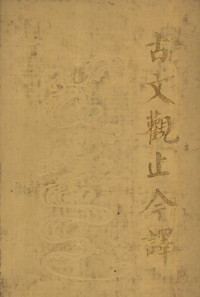 古文觀止今譯